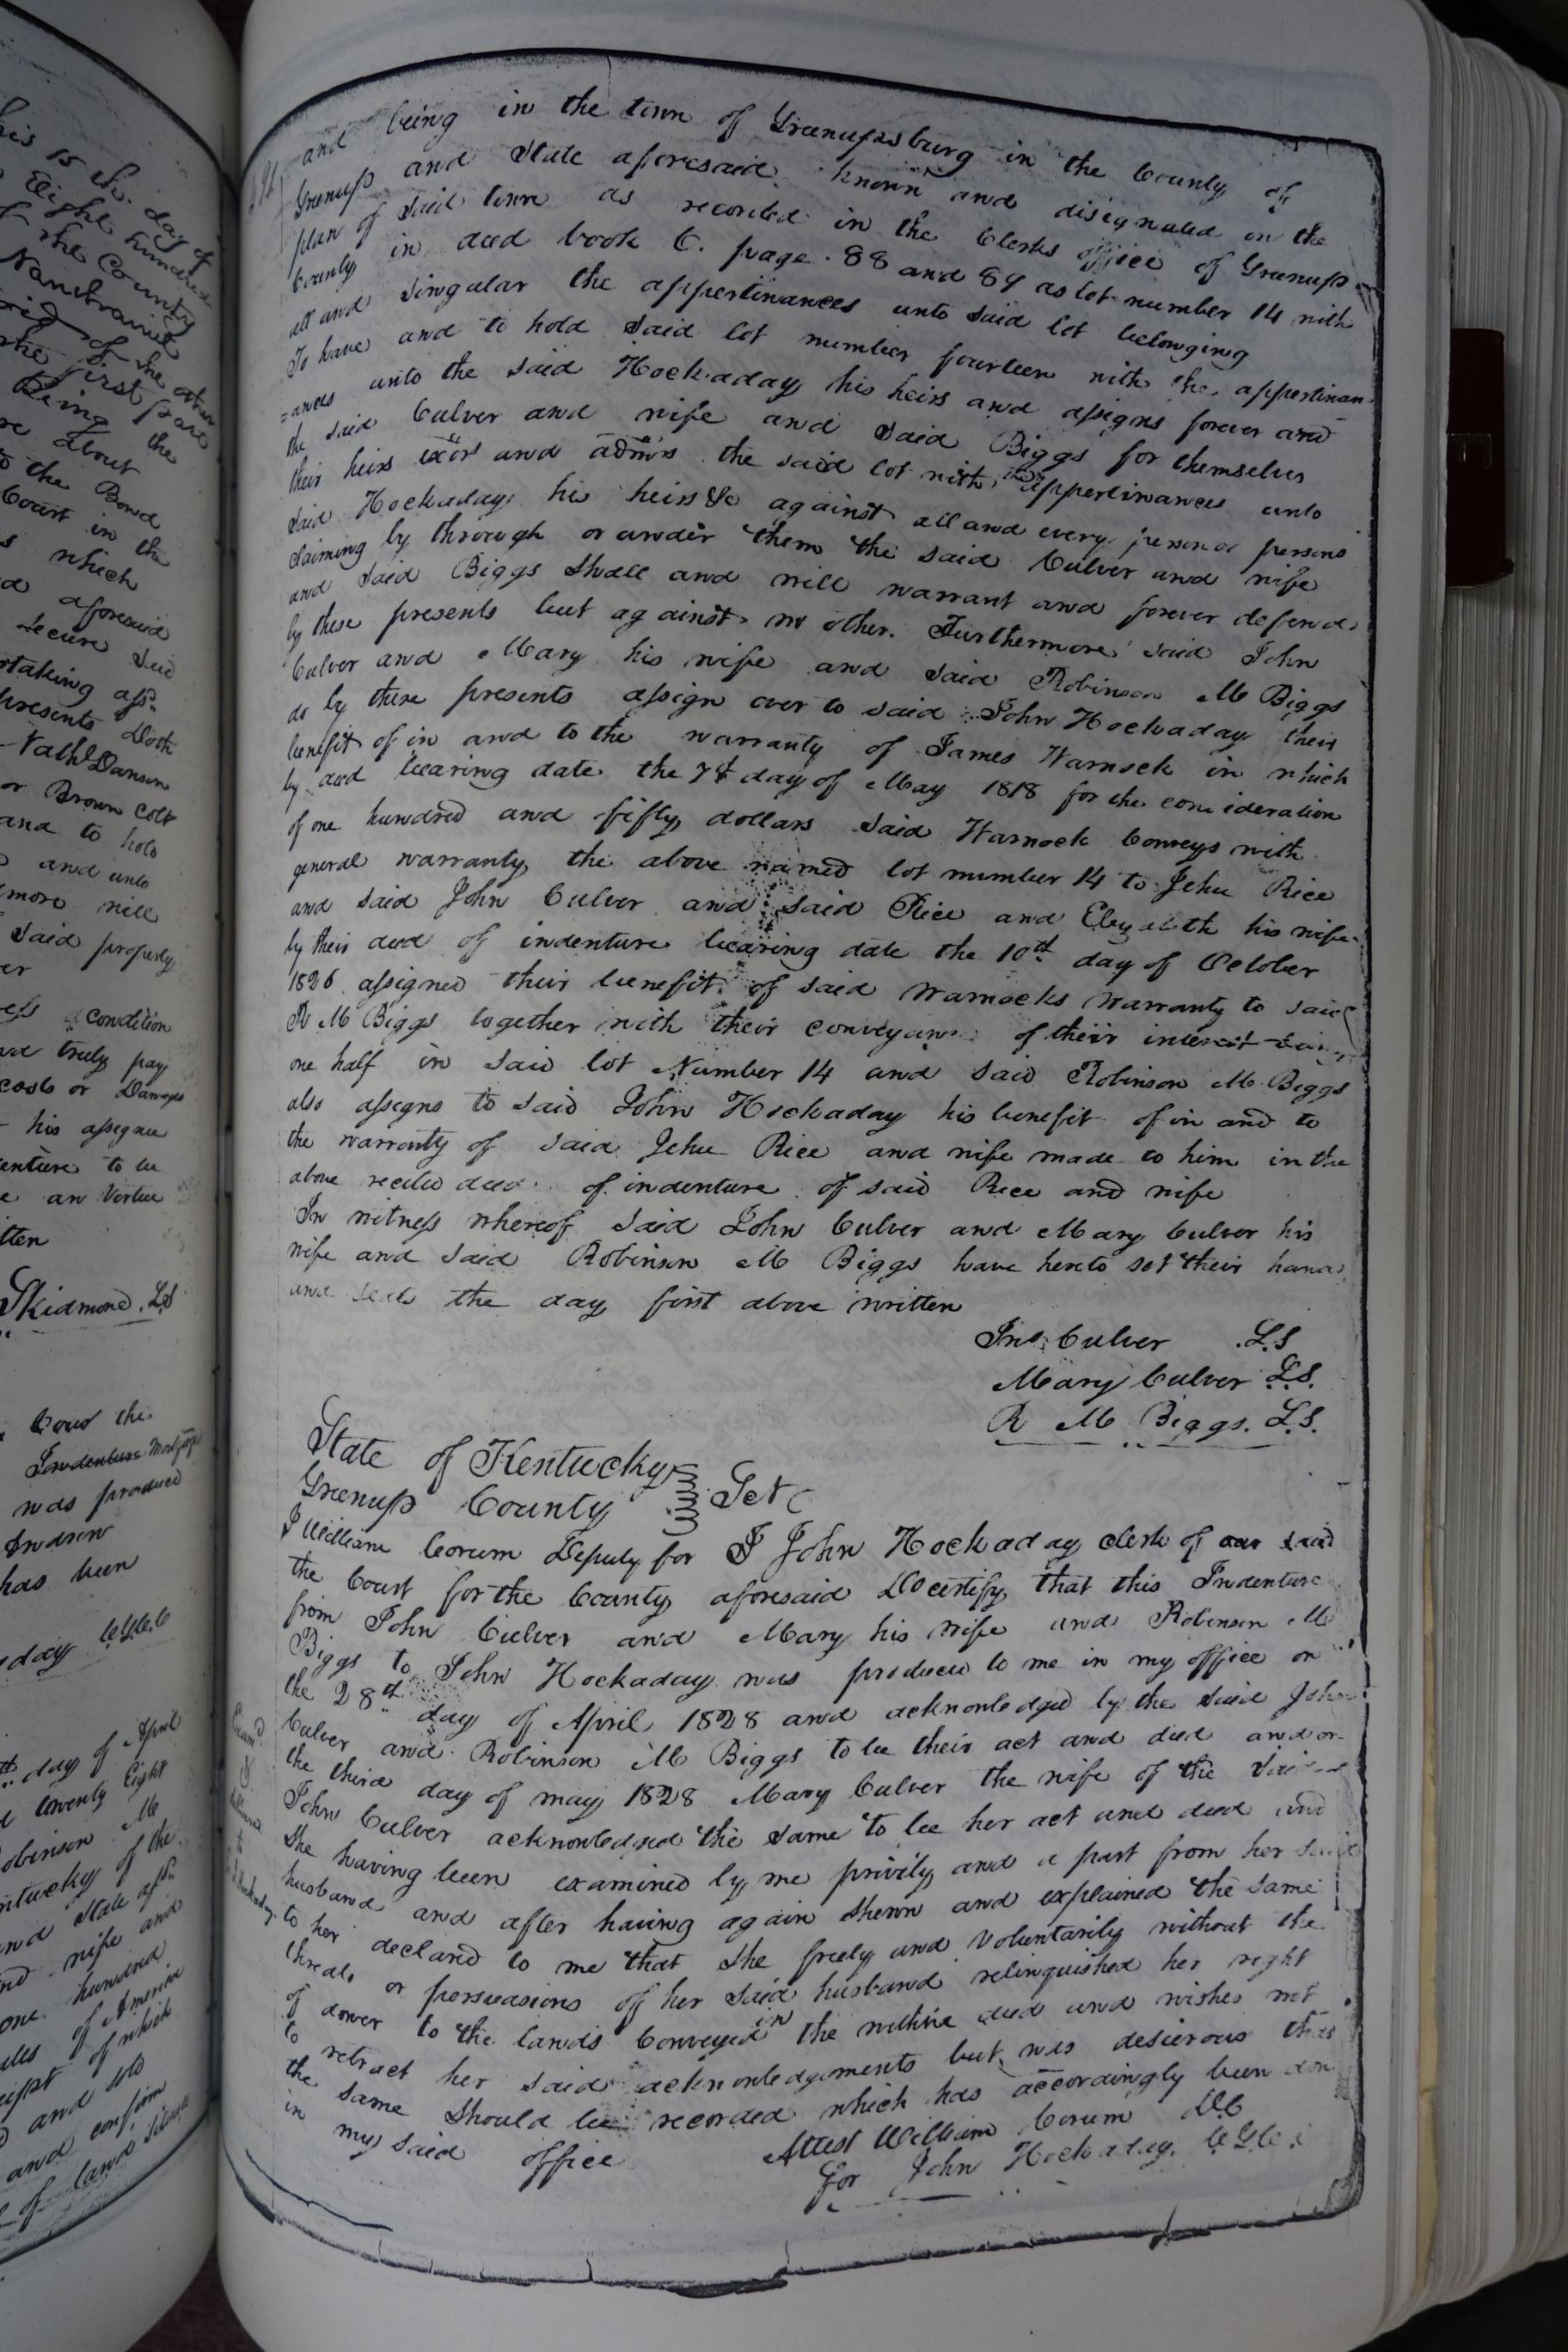 his 15 th. day of
Eight hundred
f the County
Nanthaniel
of the other
the first part
Being the
re about
to the Bond
Court in the
s which
d aforesaid
secure said
rtaking afsd
presents Doth
Nathl Dawson
or Brown colt
and to hold
and unto
more will
said property
er
condition
and truly pay
cost or Damages
his assignee
enture to be
e an Virtue
itten
Skidmore. LS
Court the
Indenture Mortgage
was produced
Andrew
has been
day C.G.C.C
th day of April
d twenty Eight
obinson M
ntucky of the
and State afsd
and wife and
one hundred
ills of America
ceipt of which
and sold
and confirm
of land situate
and being in the town of Greenupsburg in the County of
Greenup and State aforesaid known and designated in the
plan of said town as recorded in the Clerks office of Greenup
County in deed book C. page. 88 and 89 as lot number 14 with
all and singular the appertinances unto said lot belonging
To have and to hold said lot number fourteen with the appertinan-
=ances unto the said Hockaday his heirs and assigns forever and
the said Culver and wife and said Biggs for themselves
their heirs exors and admrs the said lot with the appertinances unto
said Hockaday his heirs &c against all and every person or persons
claiming by through or under them the said Culver and wife
and said Biggs shall and will warrant and forever defend
by these presents but against no other. Furthermore said John
Culver and Mary his wife and said Robinson M Biggs
do by these presents assign over to said John Hockaday their
benefit of in and to the warranty of James Warnock in which
by deed bearing date the 7th day of May 1818 for the consideration
of one hundred and fifty dollars said Warnock Conveys with
general warranty the above named lot number 14 to Jehu Rice
and said John Culver and said Rice and Elizabeth his wife
by their deed of indenture bearing date the 10th day of October
1826 assigned their benefit of said Warnocks Warranty to said
R M Biggs together with their conveyance of their interest being
one half in said lot Number 14 and said Robinson M. Biggs
also assigns to said John Hockaday his benefit of in and to
the warranty of said Jehu Rice and wife made to him in the
above recited deed of indenture of said Rice and wife
In witness whereof said John Culver and Mary Culver his
wife and said Robinson M Biggs have hereto set their hands
and seals the day first above written
Jno. Culver L.S
Mary Culver L.S.
R M Biggs. L.S.
State of Kentucky
Greenup County Sct
I William Corum Deputy for I John Hockaday clerk of our said
the Court for the County aforesaid Do certify that this Indenture
from John Culver and Mary his wife and Robinson M
Biggs to John Hockaday was produced to me in my office on
the 28th day of April 1828 and acknowledged by the said John
Culver and Robinson M Biggs to be their act and deed and on
the third day of may 1828 Mary Culver the wife of the said
John Culver acknowledged the same to be her act and deed and
She having been examined by me privily and a part from her said
husband and after having again shewn and explained the same
to her declared to me that she freely and Voluntarily without the
threats or persuasions of her said husband relinquished her right
of dower to the lands Conveyed in the within deed and wishes not
to retract her said acknowledgements but was desierous that
the same should be recorded which has accordingly been don
in my said office
Attest William Corum DC
for John Hockaday. C.G.C.C
Exam'd
&
delivered
to
J Hockaday